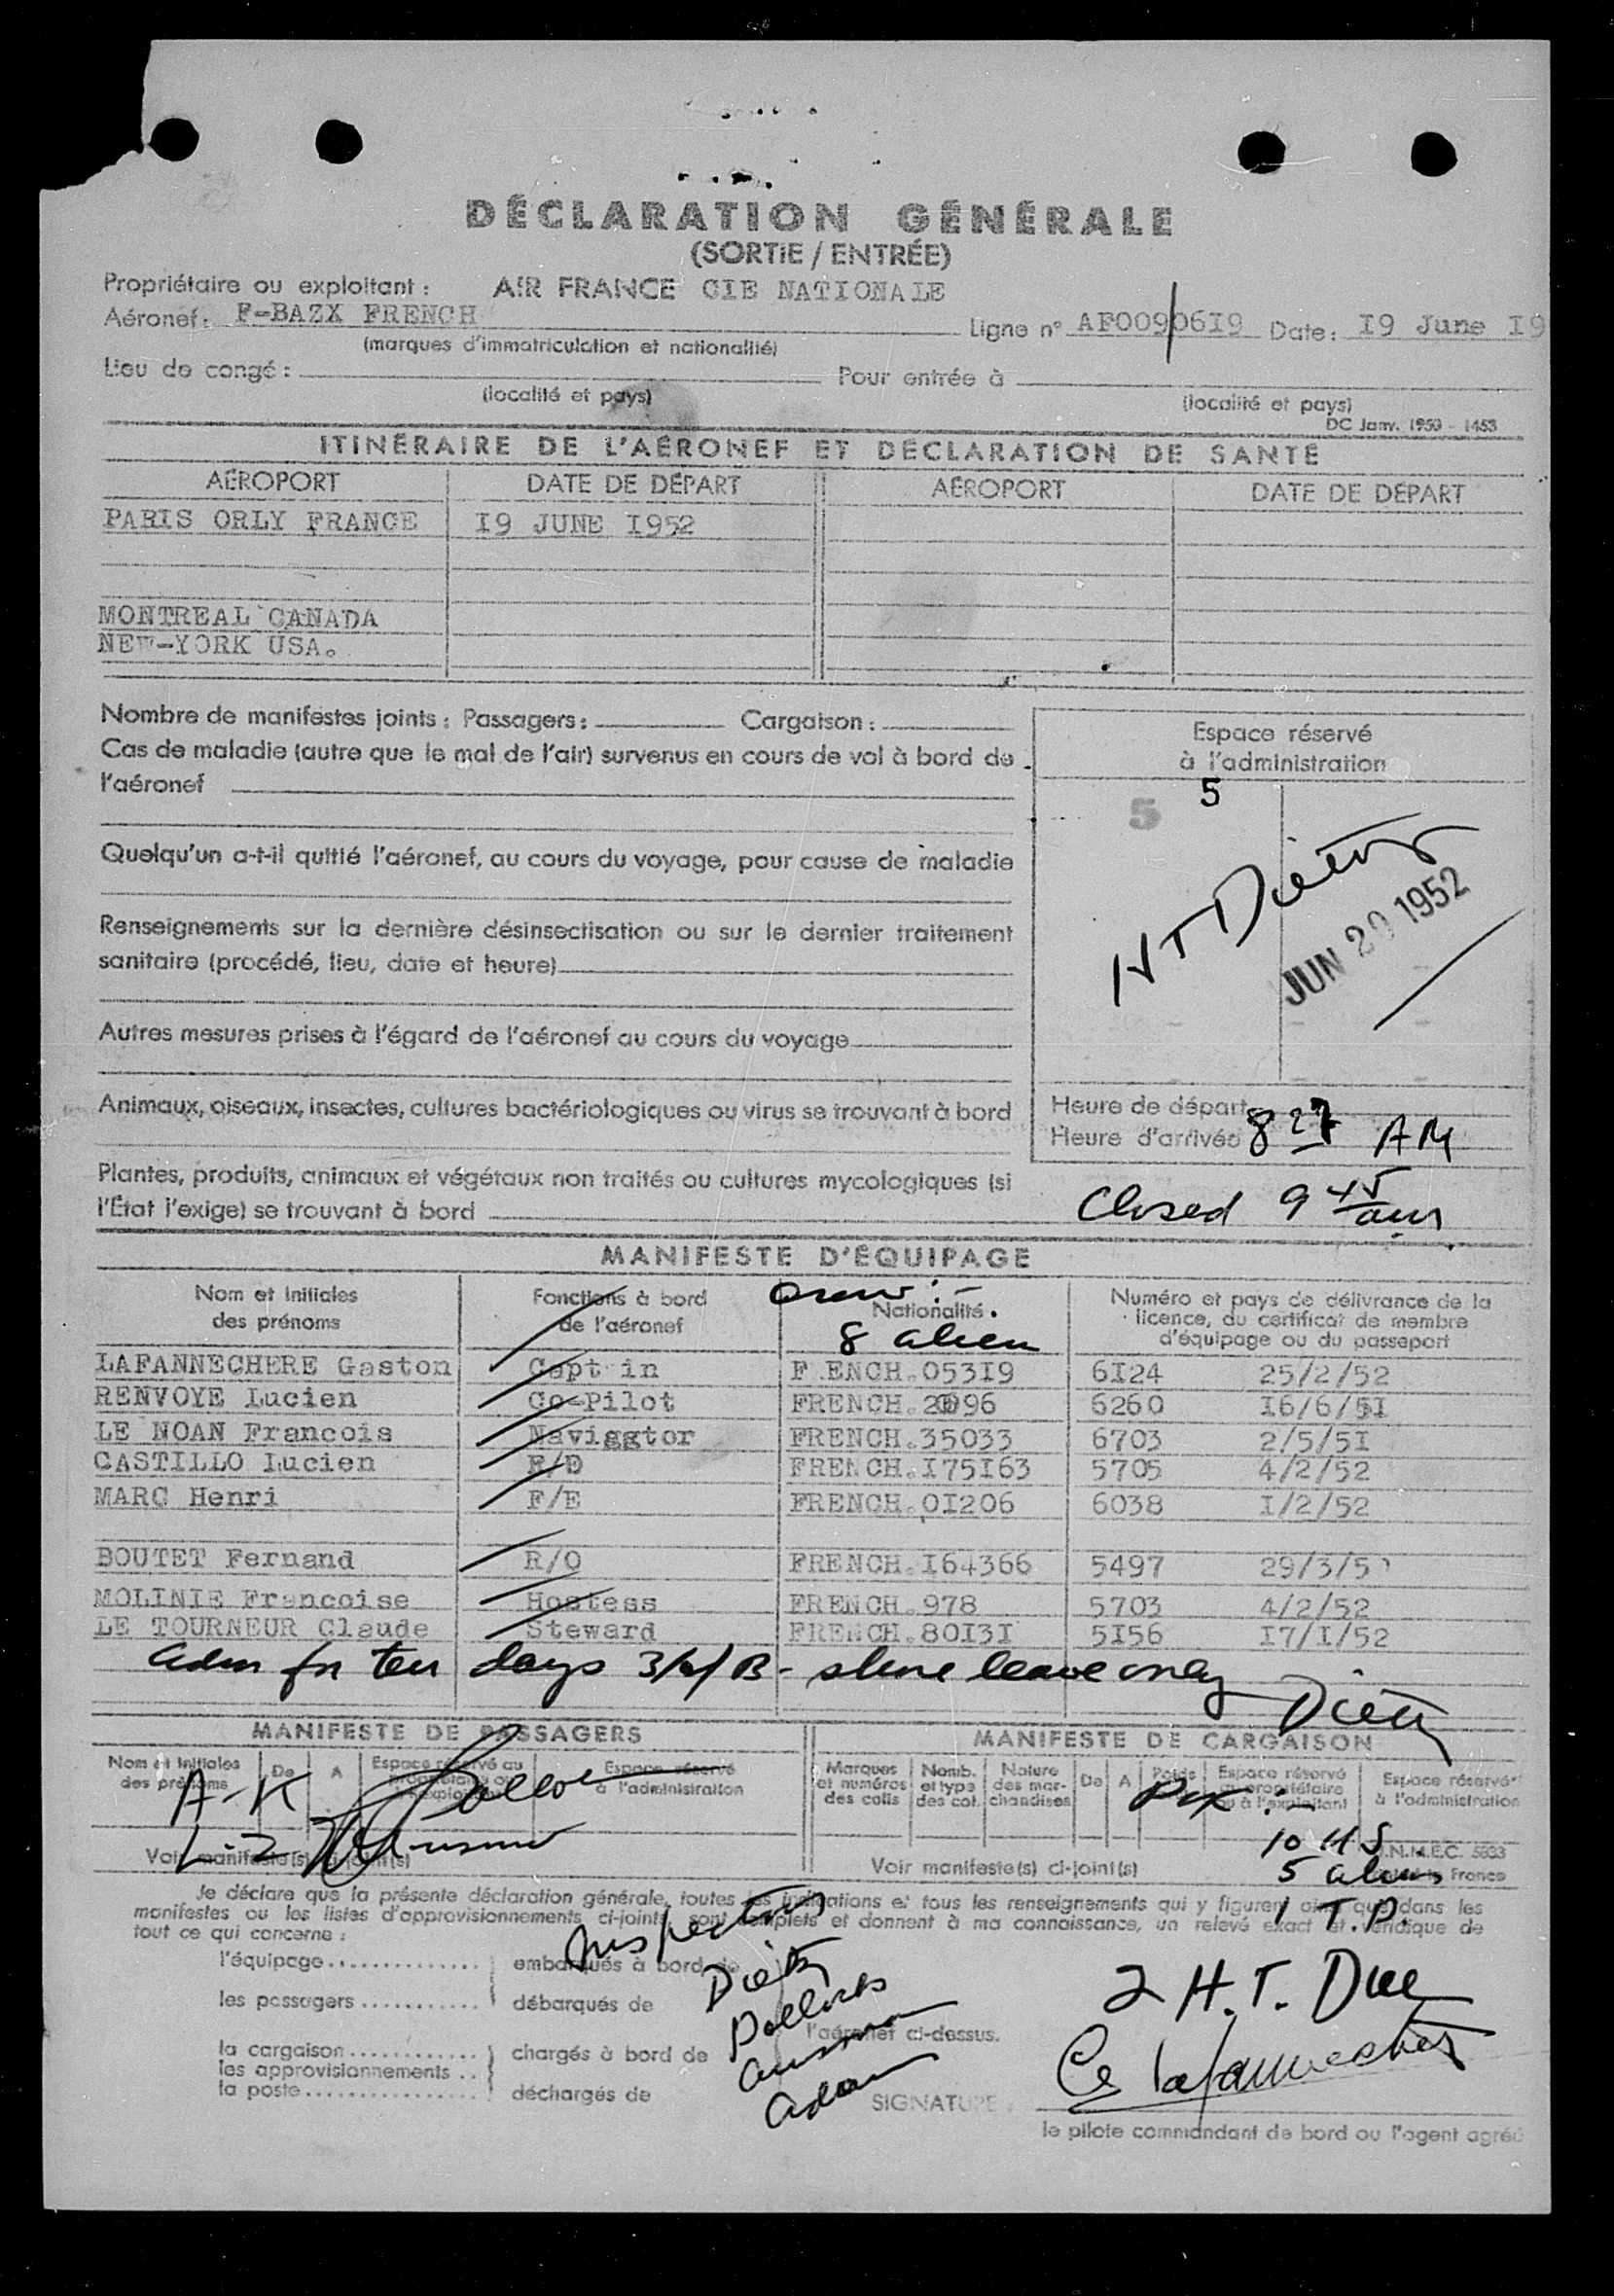 DÉCLARATION GÉNÉRALE
(SORTIE / ENTRÉE)
Propriétaire ou exploitant : AIR FRANCE CIE NATIONALE
Aéronef : F-BAZX FRENCH Ligne n° AF0090619 Date : I9 June I9
(marques d'immatriculation et nationalité)
Lieu de congé : Pour entrée à
(localité et pays) (localité et pays)
DC Janv. 1950 - 1453
ITINÉRAIRE DE L'AÉRONEF ET DÉCLARATION DE SANTÉ
AÉROPORT DATE DE DÉPART AÉROPORT DATE DE DÉPART
PARIS ORLY FRANCE I9 JUNE I952
MONTREAL CANADA
NEW-YORK USA.
Nombre de manifestes joints : Passagers : Cargaison :
Cas de maladie (autre que le mal de l'air) survenus en cours de vol à bord de
l'aéronef
Quelqu'un a-t-il quitté l'aéronef, au cours du voyage, pour cause de maladie
Renseignements sur la dernière désinsectisation ou sur le dernier traitement
sanitaire (procédé, lieu, date et heure)
Autres mesures prises à l'égard de l'aéronef au cours du voyage
Animaux, oiseaux, insectes, cultures bactériologiques ou virus se trouvant à bord
Plantes, produits, animaux et végétaux non traités ou cultures mycologiques (si
l'État l'exige) se trouvant à bord
Espace réservé
à l'administration
5 5
HT Dietz
JUN 20 1952
Heure de départ
Heure d'arrivée 8 27 AM
Closed 9 45 am
MANIFESTE D'ÉQUIPAGE
Nom et initiales
des prénoms
Fonctions à bord
de l'aéronef
Crew :-
Nationalité.
8 alien
Numéro et pays de délivrance de la
licence, du certificat de membre
d'équipage ou du passeport
LAFANNECHERE Gaston Capt in F ENCH.053I9 6I24 25/2/52
RENVOYE Lucien Co-Pilot FRENCH. 6260 I6/6/5I
LE NOAN Francois Naviggtor FRENCH.35033 6703 2/5/5I
CASTILLO Lucien FRENCH.I75I63 5705 4/2/52
MARC Henri F/E FRENCH.0I206 6038 I/2/52
BOUTET Fernand R/O FRENCH.I64366 5497 29/3/5
MOLINIE Francoise Hostess FRENCH.978 5703 4/2/52
LE TOURNEUR Claude Steward FRENCH.80I3I 5I56 I7/I/52
Adm for ten days - shore leave only
Dietz
MANIFESTE DE PASSAGERS MANIFESTE DE CARGAISON
Nom et initiales
des prénoms
De A
Espace réservé au
propriétaire ou
Espace réservé
à l'administration
A-K Pollock
L-Z
Marques
et numéros
des colis
Nomb.
et type
des col.
Nature
des mar-
chandises
De A Poids
Espace réservé
au propriétaire
ou à l'exploitant
Espace réservé
à l'administration
10 US
5 aliens
1 T.D.
Voir manifeste(s) ci-joint(s) Voir manifeste(s) ci-joint(s)
Je déclare que la présente déclaration générale, toutes les indications et tous les renseignements qui y figurent ainsi que dans les
manifestes ou les listes d'approvisionnements ci-joints, sont complets et donnent à ma connaissance, un relevé exact et véridique de
tout ce qui concerne :
Inspectors
l'équipage embarqués à bord de
les passagers débarqués de
Dietz
Pollock
Ausman
Adam
l'aéronef ci-dessus.
la cargaison chargés à bord de
les approvisionnements
la poste déchargés de
2 H.T. Due
SIGNATURE :
le pilote commandant de bord ou l'agent agréé